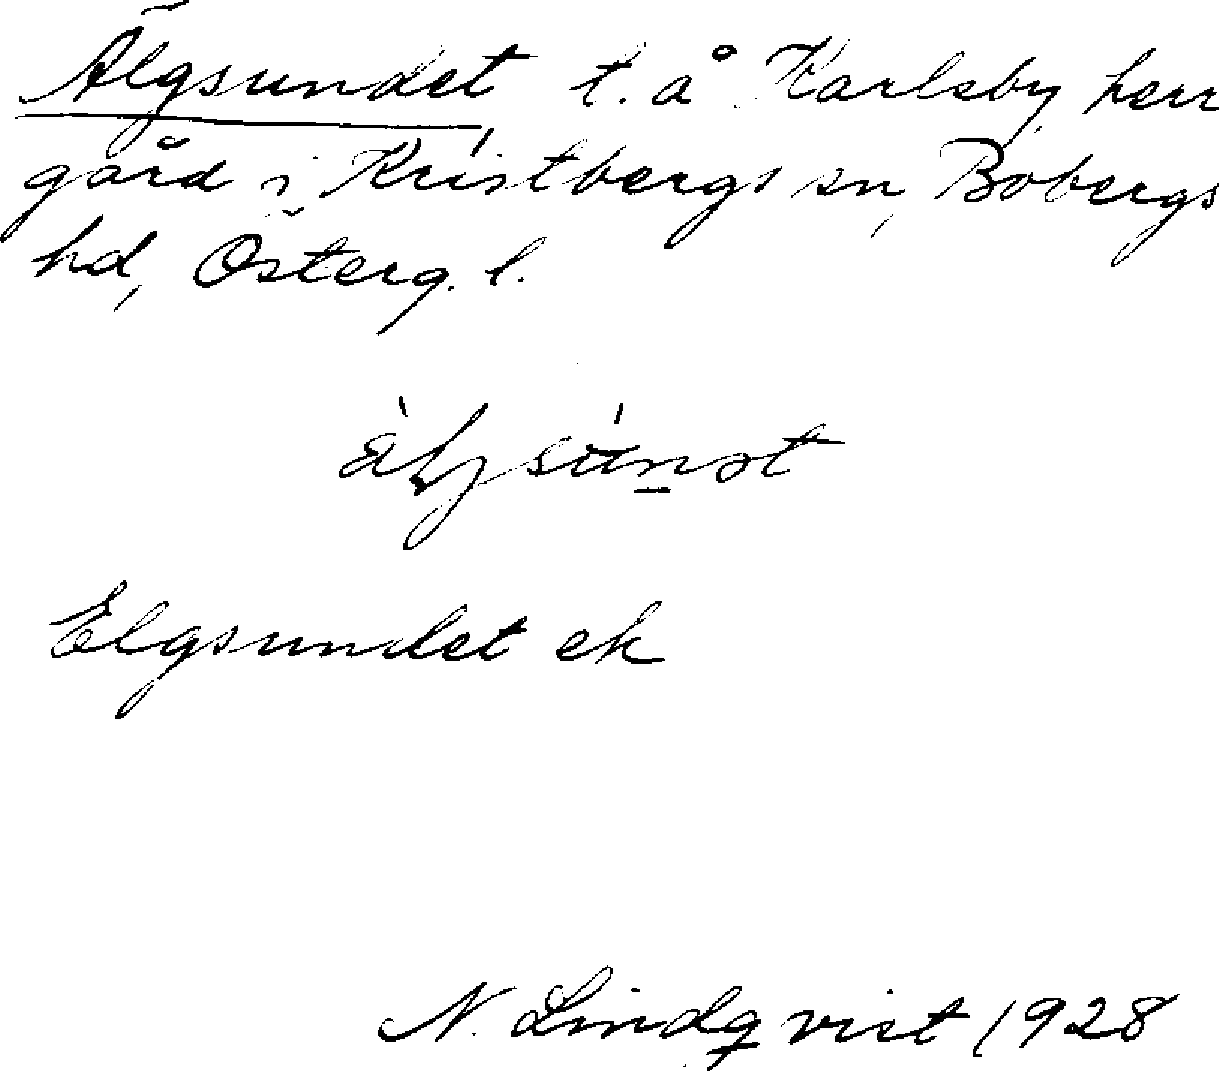 Älgsundet t. å Karlsby herr
gård i Kristbergs sn, Bobergs
hd, Österg. l.
Elgsundet ek
N. Lindqvist 1928